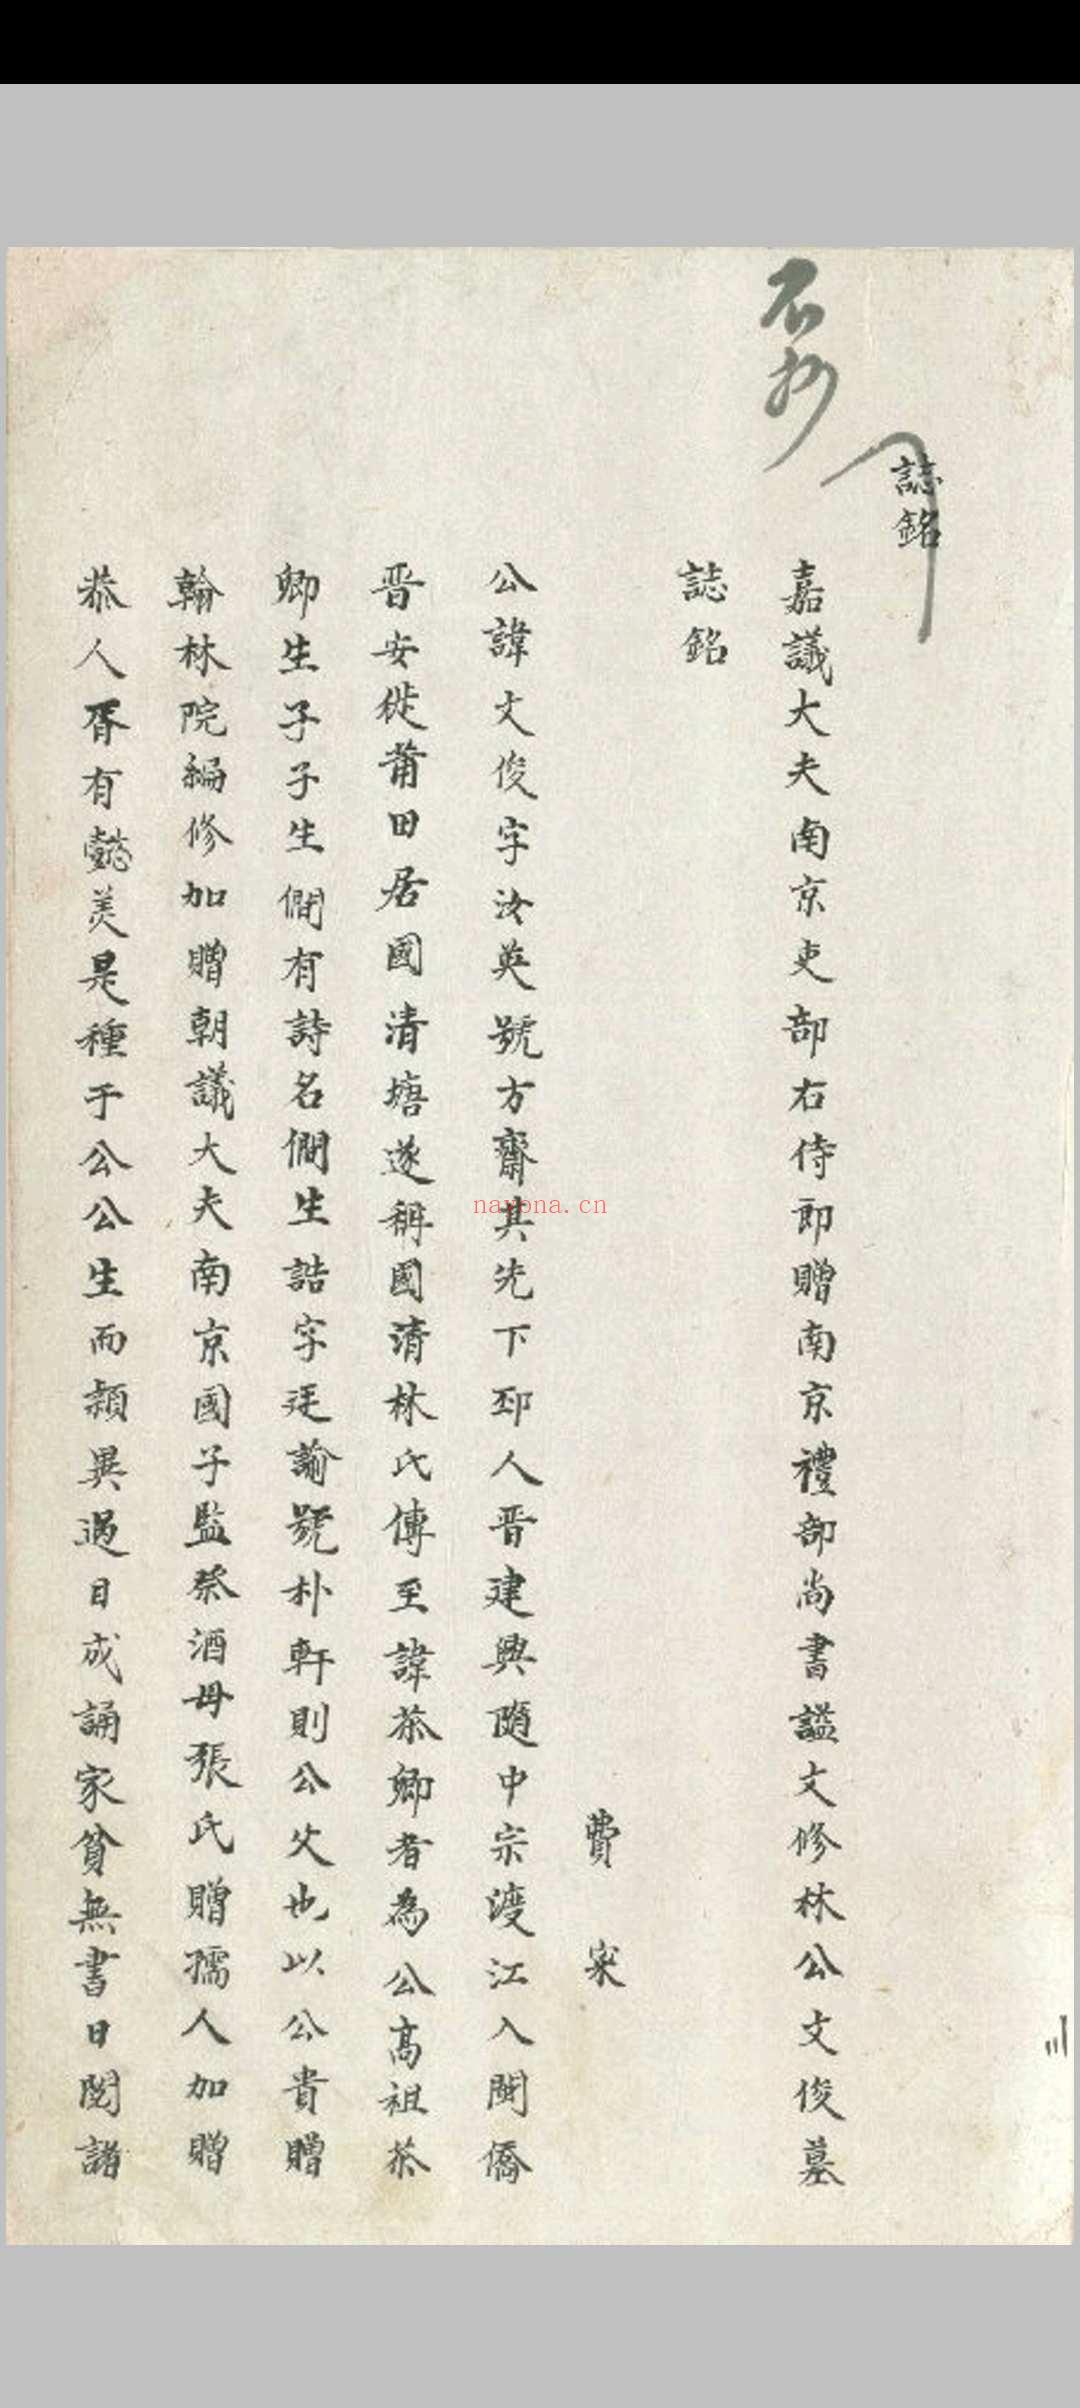 誌銘
嘉議大夫南京吏部右侍郎贈南京禮部尚書謚文修林公文俊墓
誌銘
費寀
公諱文俊字汝英號方齋其先下邳人晋建興隨中宗渡江入閩僑
晋安徙莆田居國清塘遂稱國清林氏傳至諱恭卿者為公高祖恭
卿生子子生僩有詩名僩生誥字廷諭號朴軒則公父也以公貴贈
翰林院編修加贈朝議大夫南京國子監祭酒母張氏贈孺人加贈
恭人胥有懿美是種于公公生而穎異過目成誦家貧無書日閱諸
nayona.cn